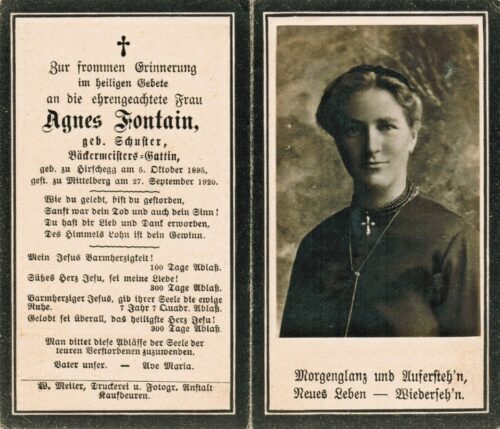 Zur frommen Erinnerung
im heiligen Gebete
an die ehrengeachtete Frau
Agnes Fontain,
geb. Schuster,
Bäckermeisters-Gattin,
geb. zu Hirschegg am 5. Oktober 1895,
gest. zu Mittelberg am 27. September 1920.
Wie du gelebt, bist du gestorben,
Sanft war dein Tod und auch dein Sinn!
Du hast dir Lieb und Dank erworben,
Des Himmels Lohn ist dein Gewinn.
Mein Jesus Barmherzigkeit!
100 Tage Ablaß.
Süßes Herz Jesu, sei meine Liebe!
300 Tage Ablaß.
Barmherziger Jesus, gib ihrer Seele die ewige
Ruhe. 7 Jahr 7 Quadr. Ablaß.
Gelobt sei überall, das heiligste Herz Jesu!
300 Tage Ablaß.
Man bittet diese Abläße der Seele der
teuren Verstorbenen zuzuwenden.
Vater unser. — Ave Maria.
W. Meiler, Druckerei u. Fotogr. Anstalt
Kaufbeuren.
Morgenglanz und Aufersteh'n,
Neues Leben — Wiederseh'n.